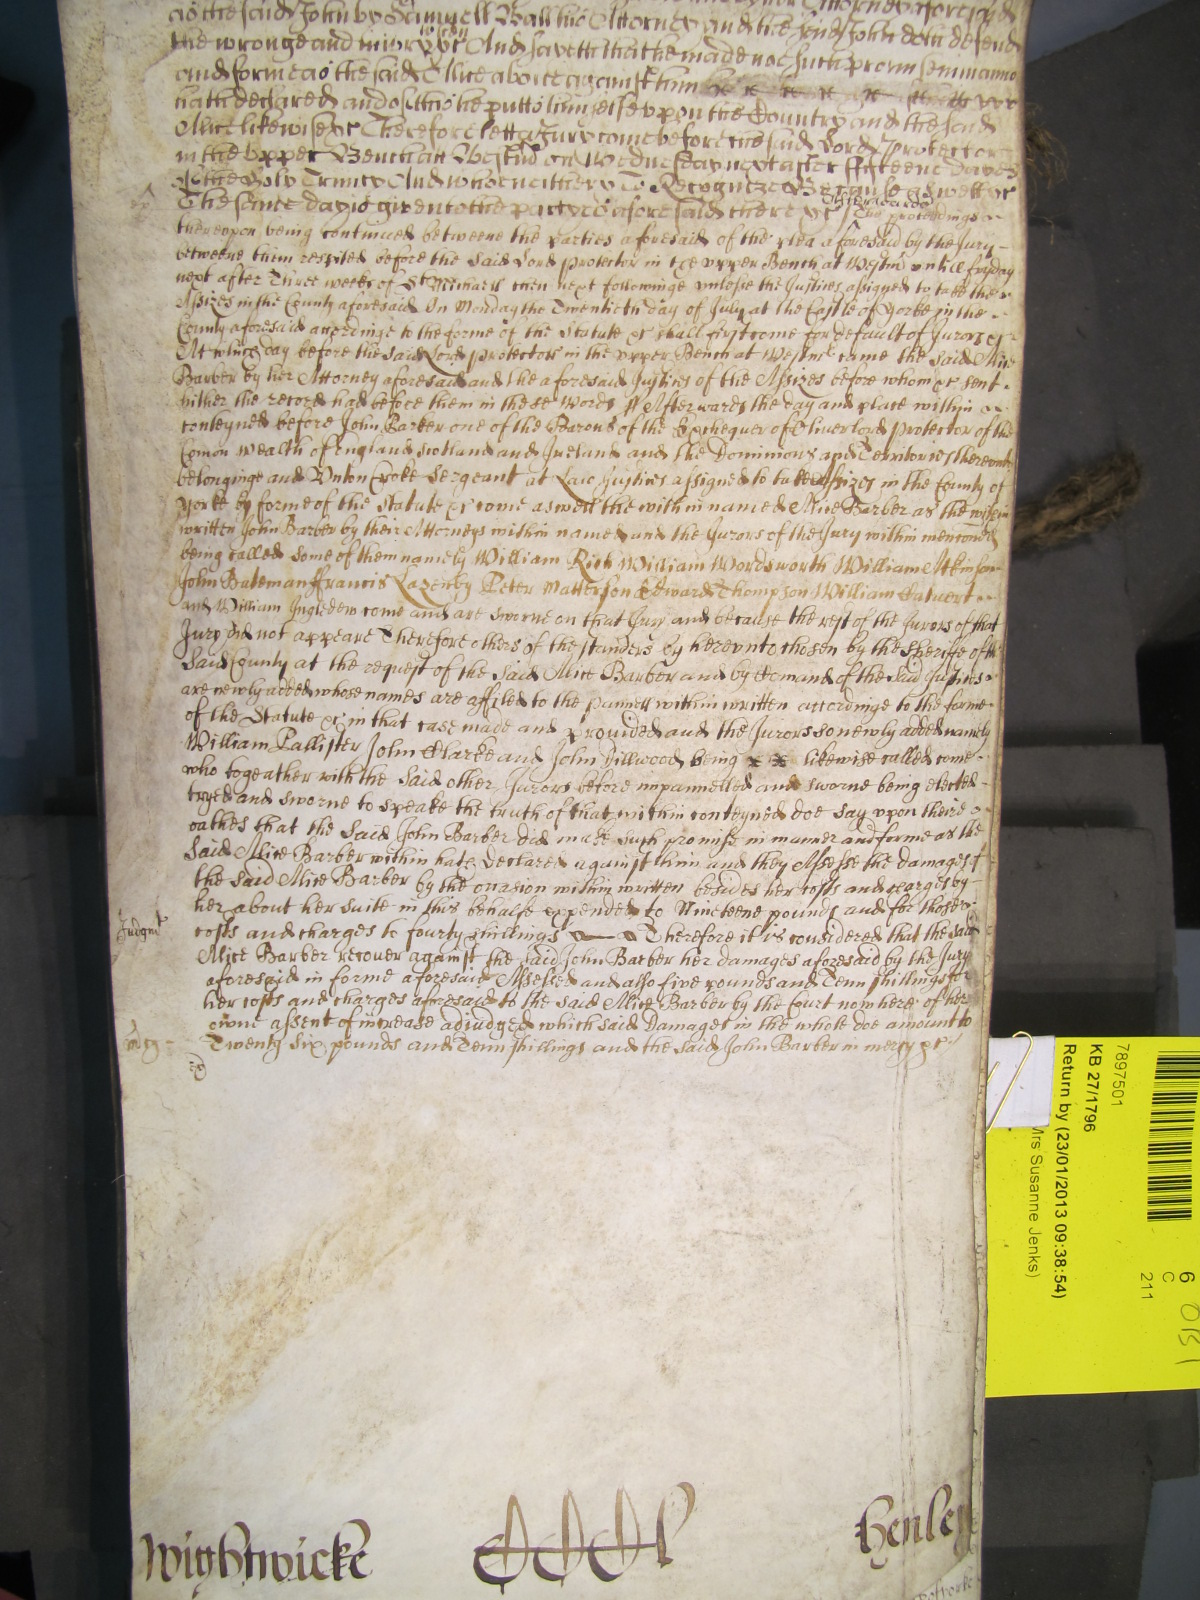 as the said John by Samuell Ball his Attorney and the said John doth defend
the wronge and iniury &c And sayeth that he made not such promise in manner
and forme as the said Alice above against him
hath declared and of this he putts himselfe upon the Country and the said
Alice likewise &c Therefore lett a Jury come before the said Lord Protector
in the Upper Bench att Westmr on Wednesday next after fifteene dayes
of the Holy Trinity And who neither &c To Recognize &c Because aswell &c
The same day is given to the partyes aforesaid there &c Afterwards The proceedings
thereupon being continued betweene the parties aforesaid of the plea aforesaid by the Jury
betweene them respited before the said Lord Protector in the upper Bench at Westmr untill fryday
next after Three weekes of St Michaell then next followinge unlesse the Justices assigned to take the
Assizes in the County aforesaid On Monday the Twentieth day of July at the Castle of Yorke in the
County aforesaid accordinge to the forme of the Statute &c shall first come for default of Jurors &c
At which day before the said Lord protector in the upper Bench at Westmr came the said Alice
Barber by her Attorney aforesaid and the aforesaid Justices of the Assizes before whom &c sent
hither the record had before them in these words ss Afterwards the day and place within
conteyned before John Parker one of the Barons of the Exchequer of Oliver lord Protector of the
Comon wealth of England Scotland and Ireland and the Dominions and Territories thereunto
belonginge and Unton Croke Sergeant at Law Justices assigned to take Assizes in the County of
Yorke by forme of the Statute &c come aswell the within named Alice Barber as the within
written John Barber by their Attorneys within named and the Jurors of the Jury within menconed
being called some of them namely William Rich William Wordsworth William Atkinson
John Bateman ffrancis Lazenby Peter Matterson Edward Thompson William Calvert
and William Ingledew come and are sworne on that Jury and because the rest of the Jurors of that
Jury did not appeare Therefore others of the standers by hereunto chosen by the Sheriffe of the
said County at the request of the said Alice Barber and by Comand of the said Justices
are newly added whose names are affiled to the pannell within written accordinge to the forme
of the Statute &c in that case made and provided and the Jurors so newly added namely
William Pallister John Clarke and John Dillwood being likewise called come
who togeather with the said other Jurors before impannelled and sworne being elected
tryed and sworne to speake the truth of that within conteyned doe say upon their
oathes that the said John Barber did make such promise in manner and forme as the
said Alice Barber within hath declared against him and they Assesse the damages of
the said Alice Barber by the occasion within written besides her costs and charges by
her about her suite in this behalfe expended to Nineteene pounds and for those
Judgmt
costs and charges to fourty shillings Therefore it is considered that the said
Alice Barber recover against the said John Barber her damages aforesaid by the Jury
aforesaid in forme aforesaid Assessed and also five pounds and Tenn shillings for
her costs and charges aforesaid to the said Alice Barber by the Court now here of her
owne assent of increase adjudged which said Damages in the whole doe amount to
mcy
Twenty six pounds and Tenn shillings and the said John Barber in mercy &c
Wightwicke
Henley
7897501
KB 27/1796
Return by (23/01/2013 09:38:54)
Mrs Susanne Jenks)
6
C
211